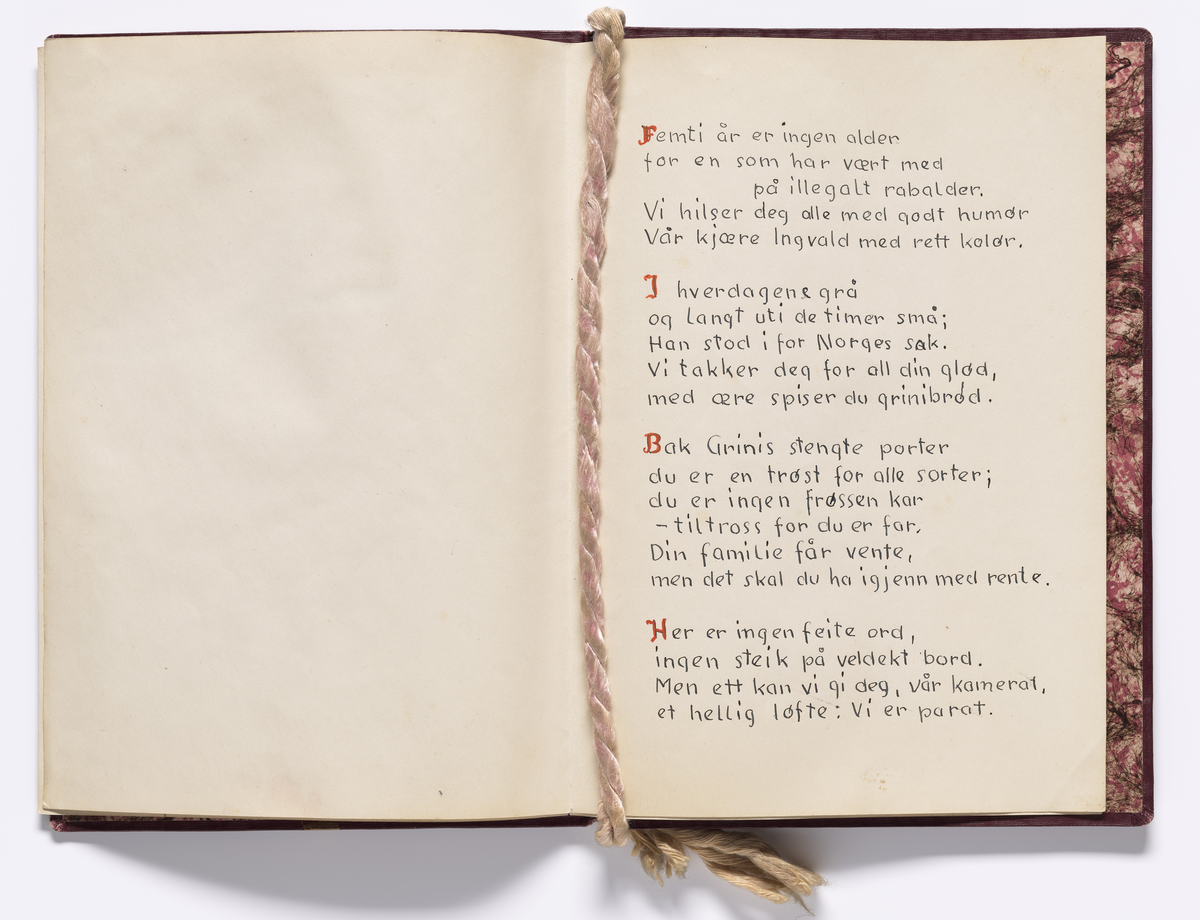 Femti år er ingen alder
for en som har vært med
på illegalt rabalder.
Vi hilser deg alle med godt humør
Vår kjære Ingvald med rett kolør.
I hverdagene grå
og langt uti de timer små;
Han stod i for Norges sak.
Vi takker deg for all din glød,
med ære spiser du grinibrød.
Bak Grinis stengte porter
du er en trøst for alle sorter;
du er ingen frossen kar
– tiltross for du er far.
Din familie får vente,
men det skal du ha igjenn med rente.
Her er ingen feite ord,
ingen steik på veldekt bord.
Men ett kan vi gi deg, vår kamerat,
et hellig løfte: Vi er parat.